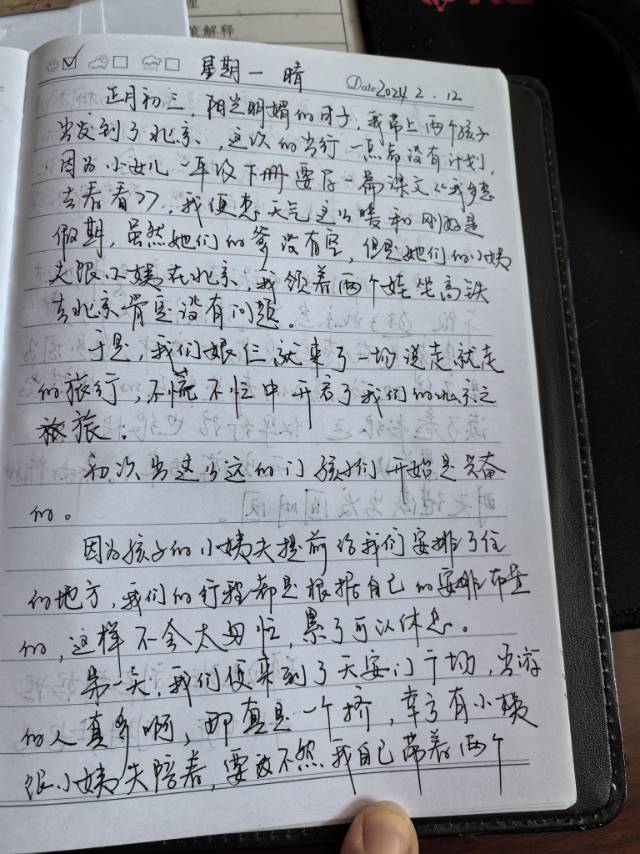 解释
星期一 晴 Date 2024.2.12
正月初三，阳光明媚的日子，我带上两个孩子
出发到了北京，这次的出行一点都没有计划，
因为小女儿一年级下册要学一篇课文《我多想
去看看》，我便想天气这么暖和刚好是
假期，虽然她们的爹没有空，但是她们的小姨
夫跟小姨在北京，我领着两个娃坐高铁
去北京肯定没有问题。
于是，我们娘仨就来了一场说走就走
的旅行，不慌不忙中开启了我们的北京之
旅。
初次出这么远的门孩子们开始是兴奋
的。
因为孩子的小姨夫提前给我们安排了住
的地方，我们的行程都是根据自己的安排布置
的，这样不会太匆忙，累了可以休息。
第一天，我们便来到了天安门广场，出游
的人真多啊，那真是一个挤，幸亏有小姨
跟小姨夫陪着，要不然我自己带着两个